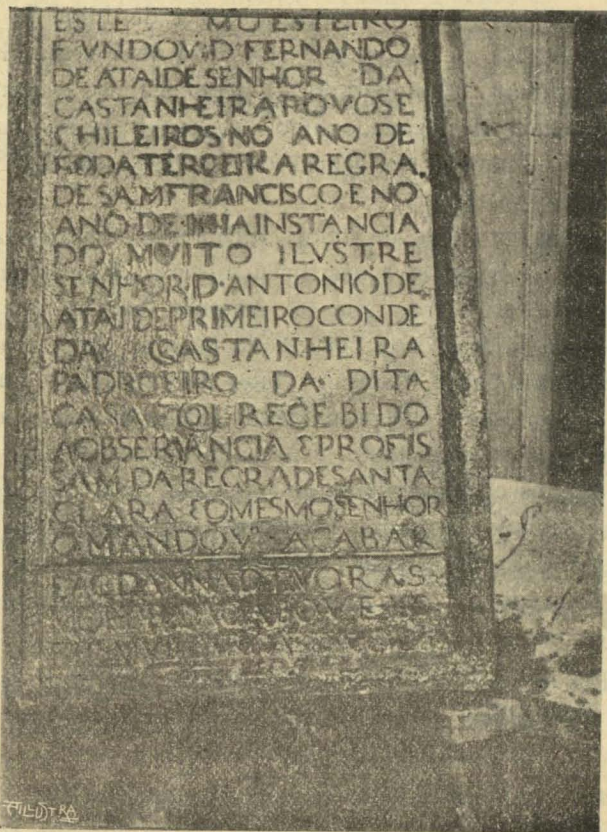 ESTE MOESTEIRO
FVNDOV·D·FERNANDO
DE ATAIDE SENHOR DA
CASTANHEIRA POVOS E
CHILEIROS NO ANO DE
DA TERCEIRA REGRA
DE SAM FRANCISCO E NO
ANO DE A INSTANCIA
DO MVITO ILVSTRE
SENHOR·D·ANTONIO DE
ATAIDE PRIMEIRO CONDE
DA CASTANHEIRA
PADROEIRO DA DITA
CASA FOI RECEBIDO
A OBSERVANCIA E PROFIS
SAM DA REGRA DE SANTA
CLARA E O MESMO SENHOR
O MANDOV ACABAR